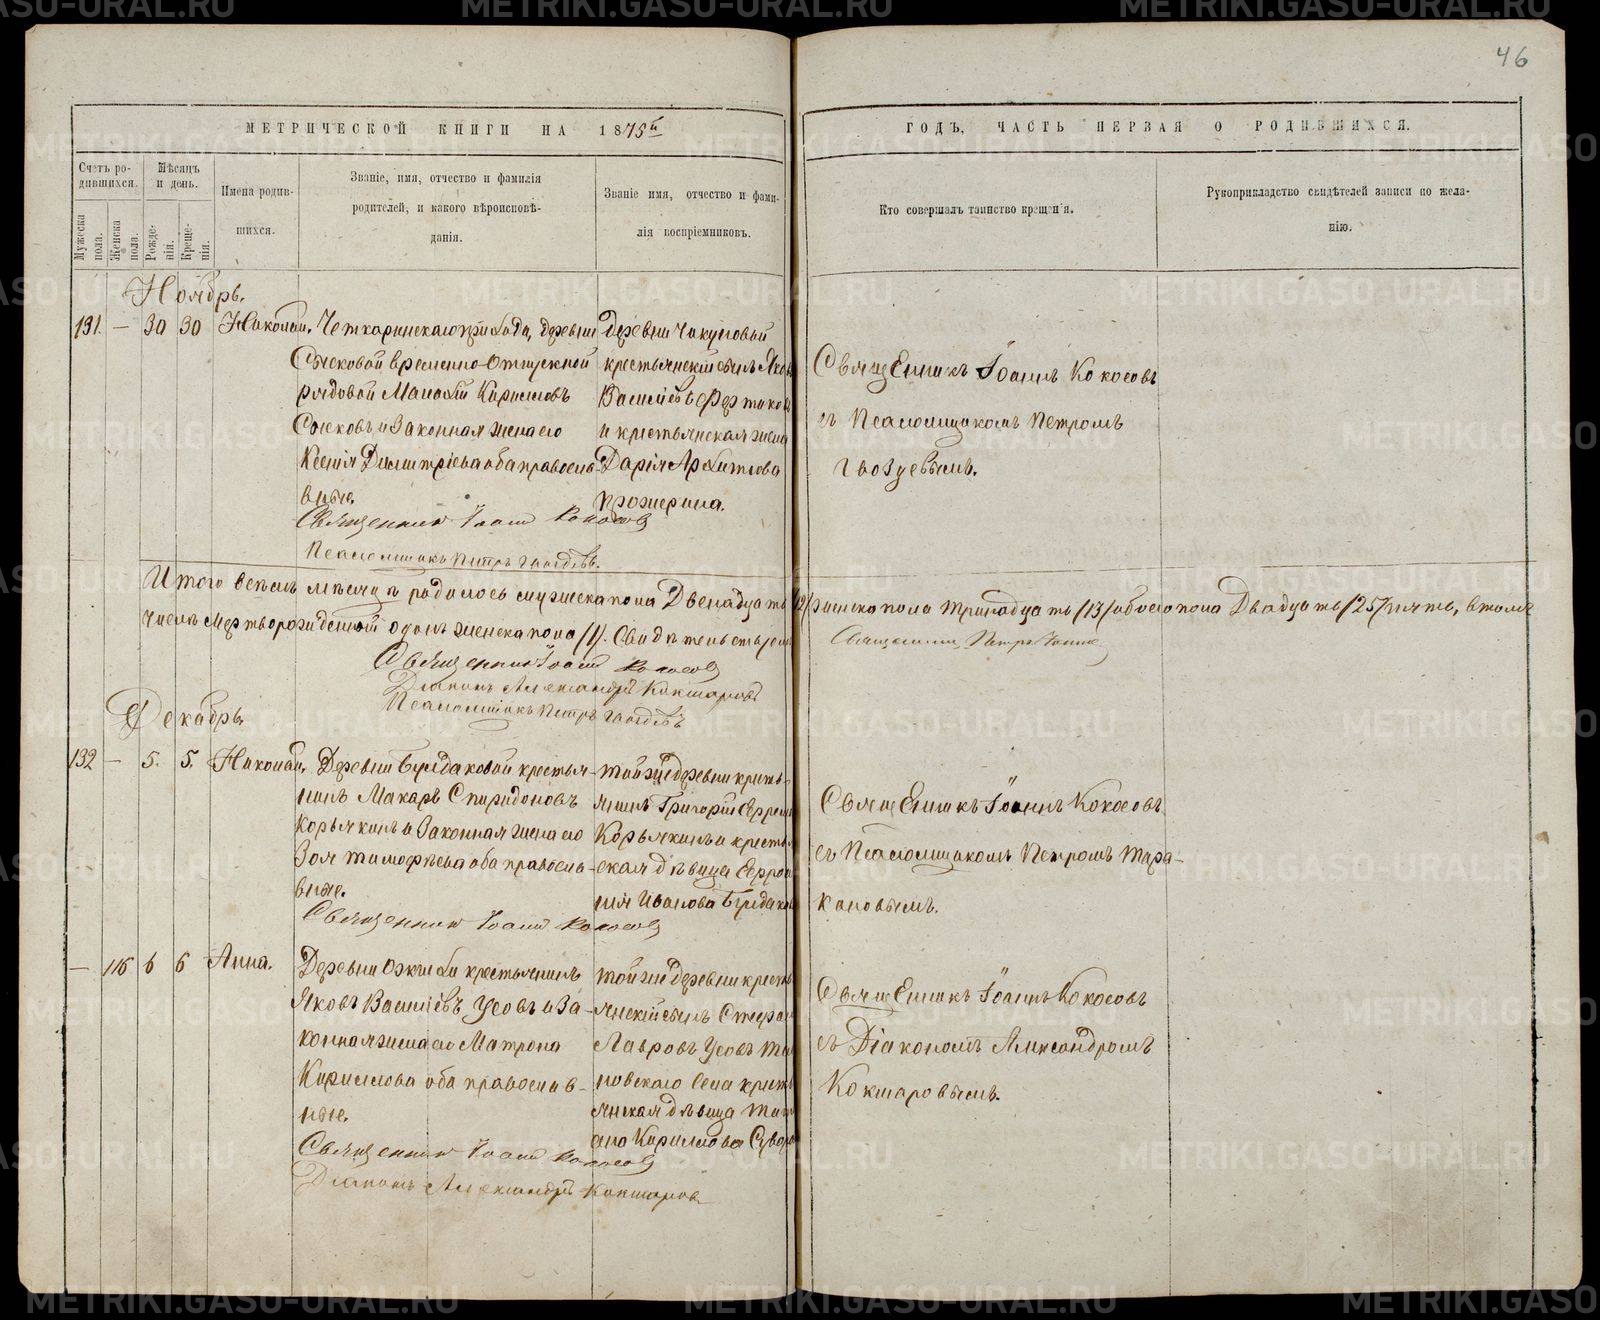 46
МЕТРИЧЕСКОЙ КНИГИ НА 1875й
ГОДЪ, ЧАСТЬ ПЕРВАЯ О РОДИВШИХСЯ.
Счетъ ро-
дившихся.
Мужеска пола.
Женска пола.
Мѣсяцъ
и день.
Рожде-
нія.
Креще-
нія.
Имена родив-
шихся.
Званіе, имя, отчество и фамилія
родителей, и какого вѣроисповѣ-
данія.
Званіе имя, отчество и фами-
лія воспріемниковъ.
Кто совершалъ таинство крещенія.
Рукоприкладство свидѣтелей записи по жела-
нію.
Ноябрь.
131. — 30 30 Николай.
деревни
временно-отпускной
рядовой Кирилловъ
и законная жена его
Ксенія Димитріева оба православ-
ные.
Священник Іоанн Кокосов
Псаломщикъ Петръ Гвоздевъ.
деревни
крестьянскій сынъ Яковъ
Васильевъ
и крестьянская жена
Дарія Архипова
Священникъ Іоаннъ Кокосовъ
съ Псаломщикомъ Петромъ
Гвоздевымъ.
Итого всемъ мѣсяцѣ родилось мужеска пола Двенадцать /12/ женска пола тринадцать /13/ обоего пола Двадцать /25/ пять, втомъ
числѣ мертворожденной одонъ женска пола /1/. Свидѣтельствуемъ
Священник Іоанн Кокосов
Діаконъ Александръ Кокшаровъ
Псаломщикъ Петръ Гвоздевъ
Декабрь.
132 — 5. 5. Николай.
Деревни Булдаковой крестья-
нинъ Макаръ Спиридоновъ
Корьякинъ и законная жена его
Зоя Тимофѣева оба православ-
вные.
Священник Іоанн Кокосов
той же деревни кресть-
янинъ Григорій
Корьякинъ и крестья
ская дѣвица
нія Иванова Булдаков
Священникъ Іоаннъ Кокосовъ
съ Псаломщикомъ Петромъ Тара-
кановымъ.
— 116 6 6 Анна.
Деревни крестьянинъ
Яковъ Васильевъ Усовъ и за-
конная жена его Матрона
Кириллова оба православ-
ные.
Священник Іоанн Кокосов
Діаконъ Александръ Кокшаров
той же деревни кресть
янскій сынъ Стефан
Лавровъ Усовъ
новскаго села кресть
янская дѣвица Тать
ана Кириллова Сувор
Священникъ Іоаннъ Кокосовъ
съ Діакономъ Александромъ
Кокшаровымъ.
METRIKI.GASO-URAL.RU